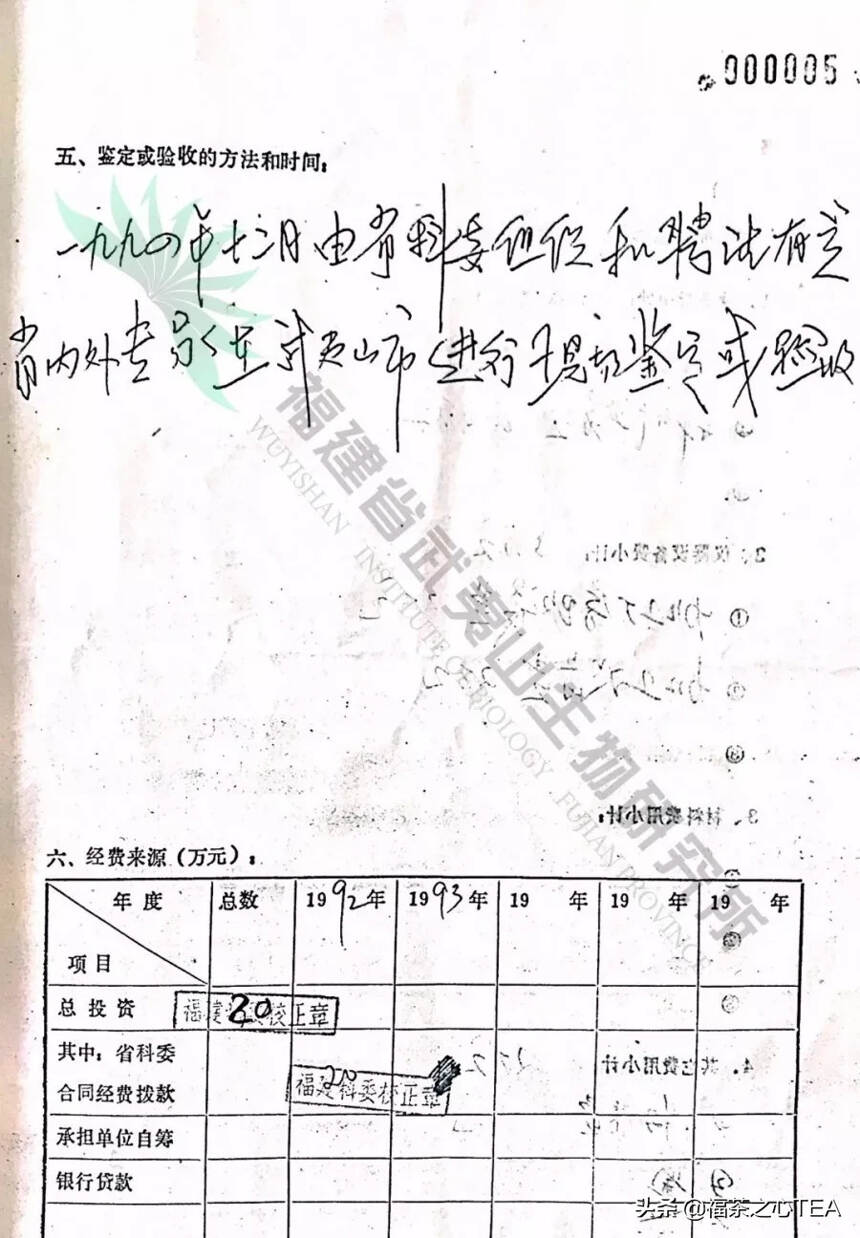 000005
五、鉴定或验收的方法和时间：
一九九四年十二月由省科委组织和聘请有关
省内外专家在武夷山市进行现场鉴定或验收
福建省武夷山生物研究所
WUYISHAN INSTITUTE OF BIOLOGY FUJIAN PROVINCE
2、仪器设备费小计：
①
②
③
3、材料费用小计：
六、经费来源（万元）：
年度 总数 1992年 1993年 19 年 19 年 19 年
项目
总投资 20
福建科委校正章
其中：省科委
合同经费拨款 20
福建科委校正章
4、其它费用小计
承担单位自筹
银行贷款
头条@福茶之心TEA